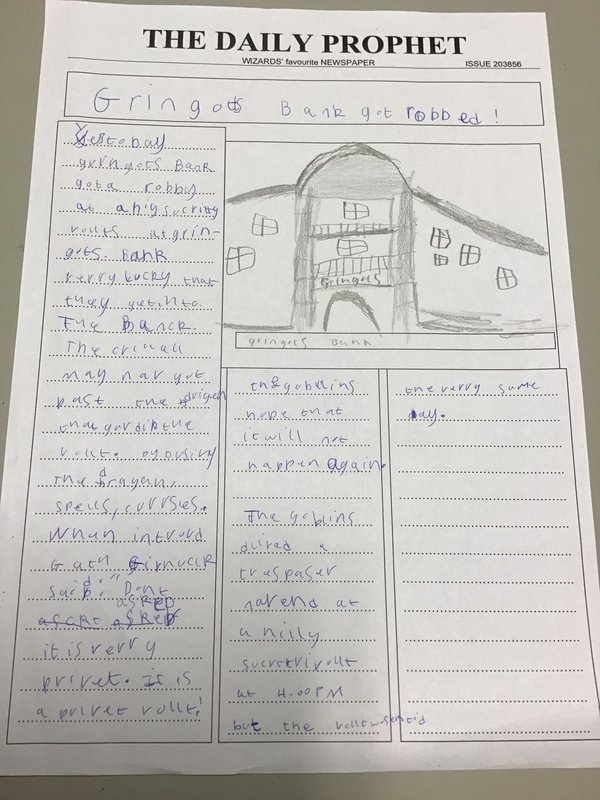 THE DAILY PROPHET
WIZARDS' favourite NEWSPAPER
ISSUE 203856
Gringots Bank got robbed!
Yestoday
gringots Bank
got a robby
at a hiy sucrity
vollts at grin-
gots. Bank
verry lucky that
they get into
The Banck
The crimall
may hav got
past the
that gardid the
vollt. by busing
the dragan,
spells, currses.
Whan introvd
Gath Girnuclk
said: " Dont
asked
it is verry
privet. It is
a privet vollt!
Gringots
gringots Bank
the gobelins
hope that
it will not
happen again.
The goblins
a
traspaser
havend at
a hiily
sucrtri vollt
at 4.00PM
but the vollt was emtid
the varry same
day.